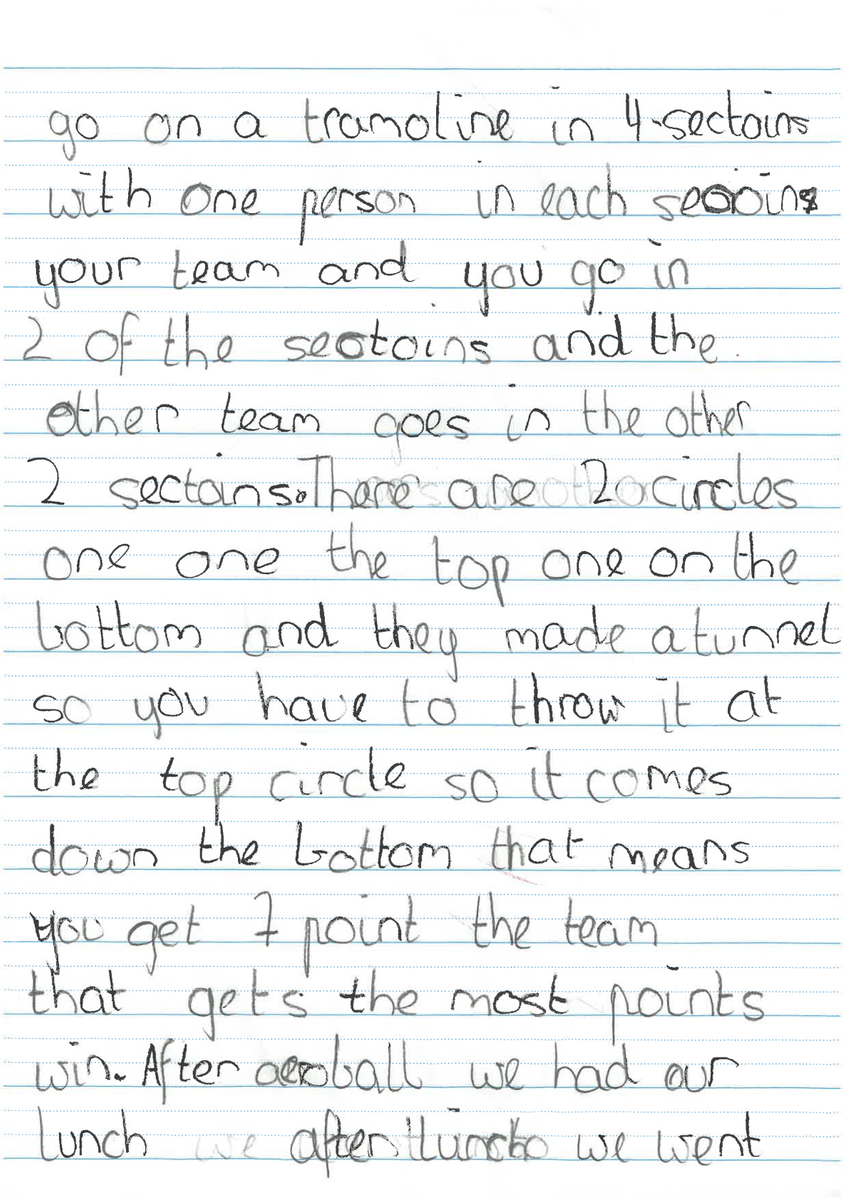 go on a tramoline in 4-sectoins
with one person in each secoins
your team and you go in
2 of the sectoins and the
other team goes in the other
2 sectoins. There are 2 circles
one one the top one on the
bottom and they made a tunnel
so you have to throw it at
the top circle so it comes
down the bottom that means
you get 1 point the team
that gets the most points
win. After aeroball we had our
lunch we after lunch we went